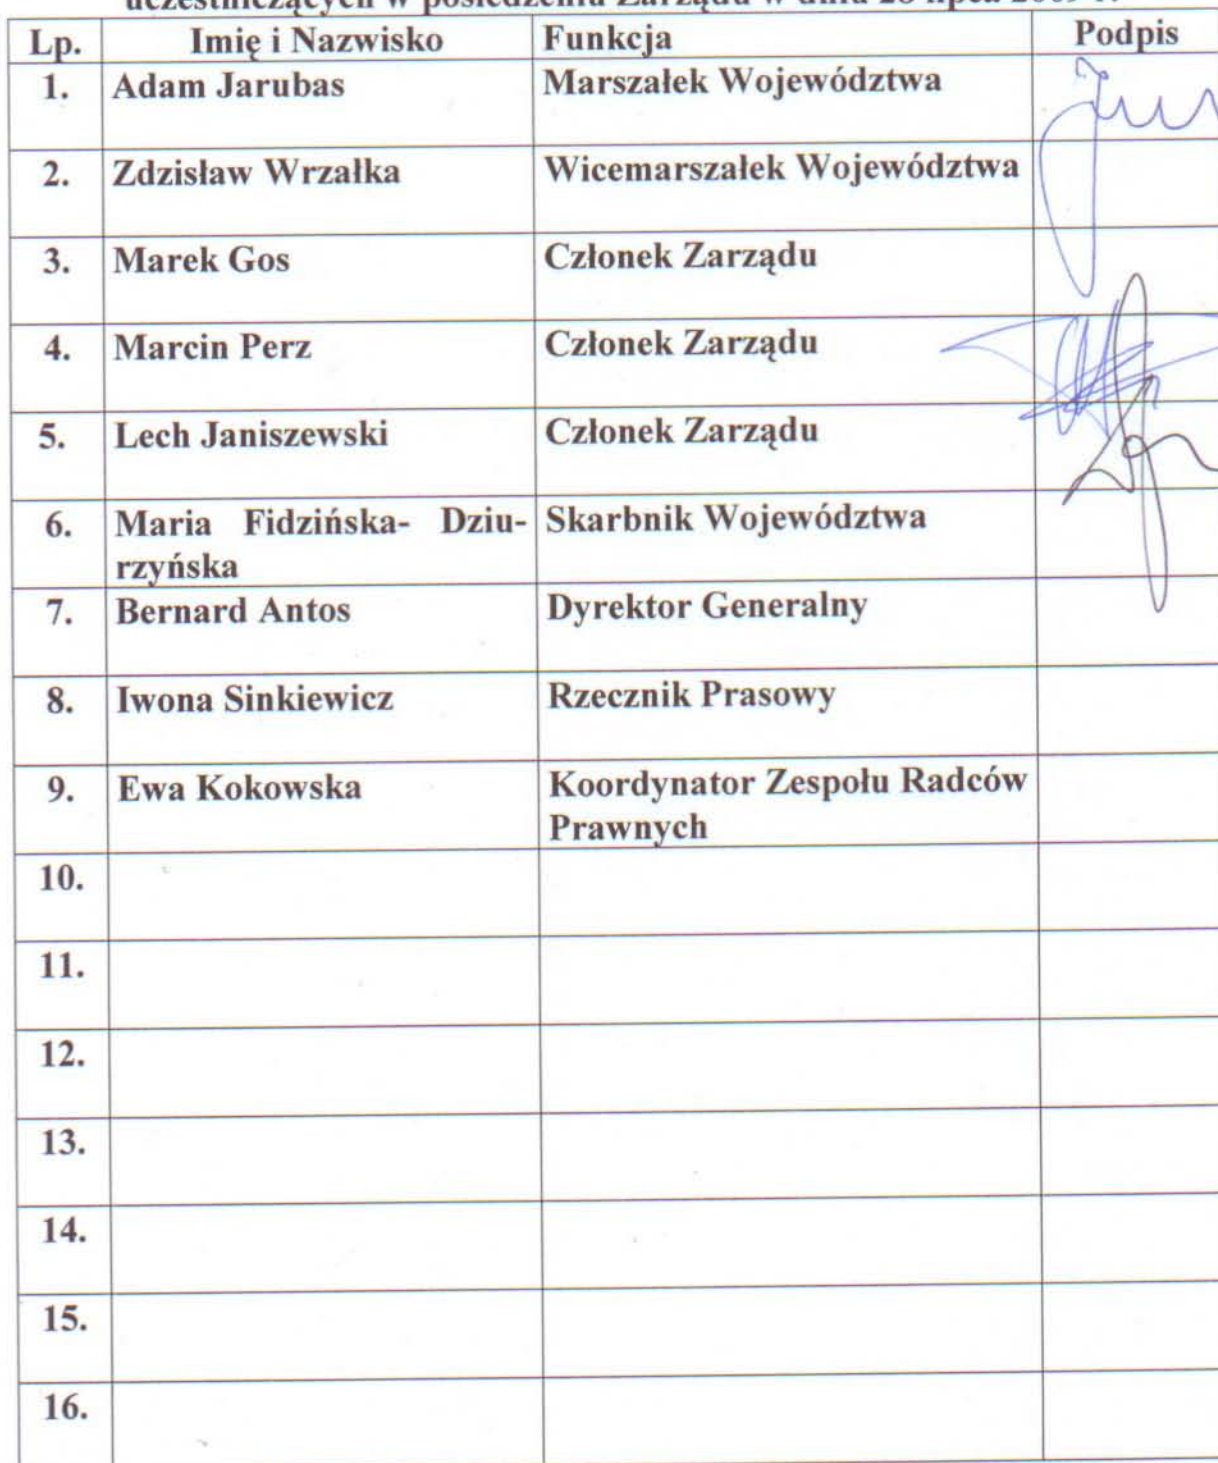 uczestniczących w posiedzeniu Zarządu w dniu 28 lipca 2009 r.
Lp. Imię i Nazwisko Funkcja Podpis
1. Adam Jarubas Marszałek Województwa
2. Zdzisław Wrzałka Wicemarszałek Województwa
3. Marek Gos Członek Zarządu
4. Marcin Perz Członek Zarządu
5. Lech Janiszewski Członek Zarządu
6. Maria Fidzińska- Dziu- Skarbnik Województwa
rzyńska
7. Bernard Antos Dyrektor Generalny
8. Iwona Sinkiewicz Rzecznik Prasowy
9. Ewa Kokowska Koordynator Zespołu Radców
Prawnych
10.
11.
12.
13.
14.
15.
16.